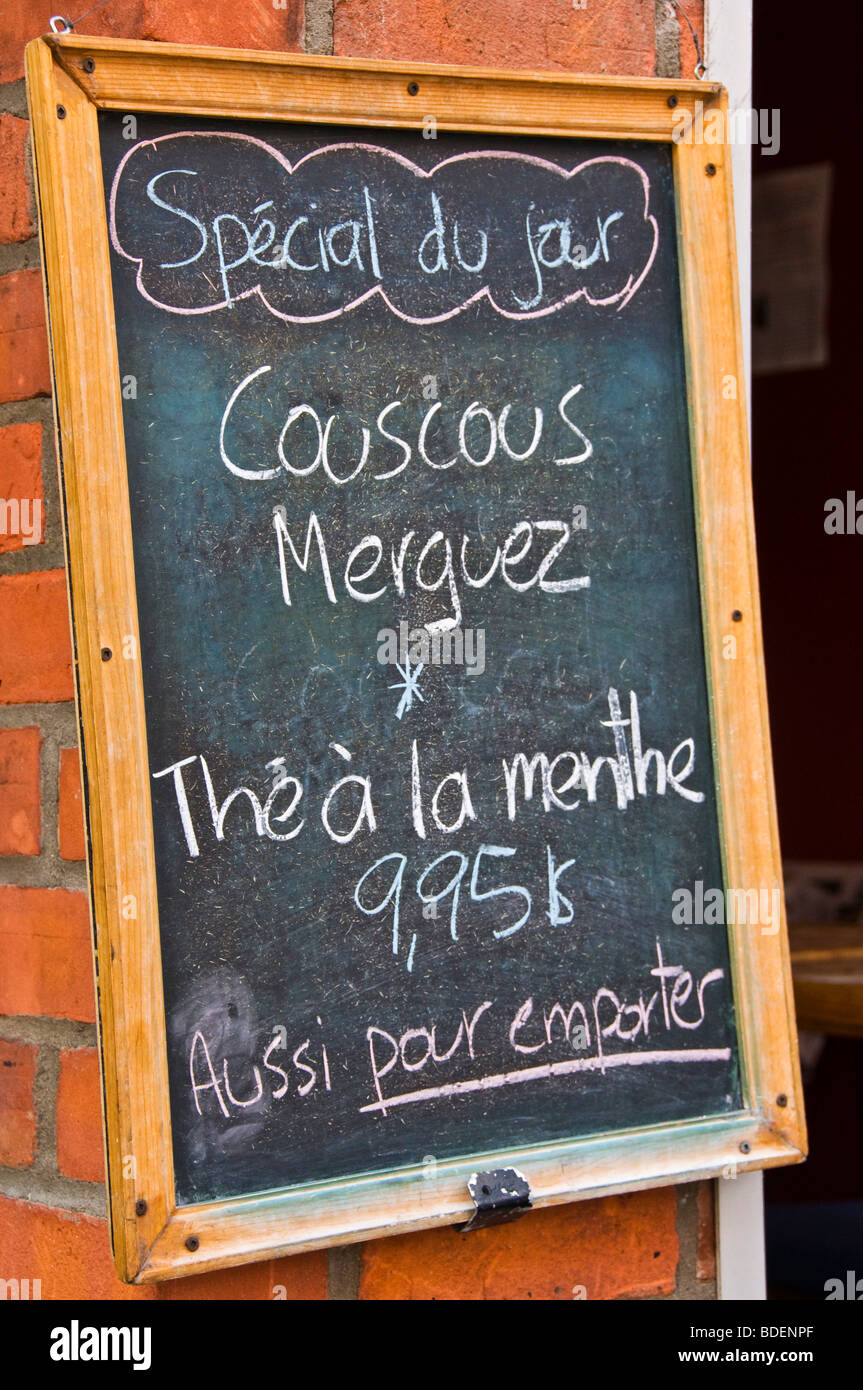 Spécial du jour
Couscous
Merguez
*
Thé à la menthe
9,95$
Aussi pour emporter
alamy
Image ID: BDENPF
www.alamy.com